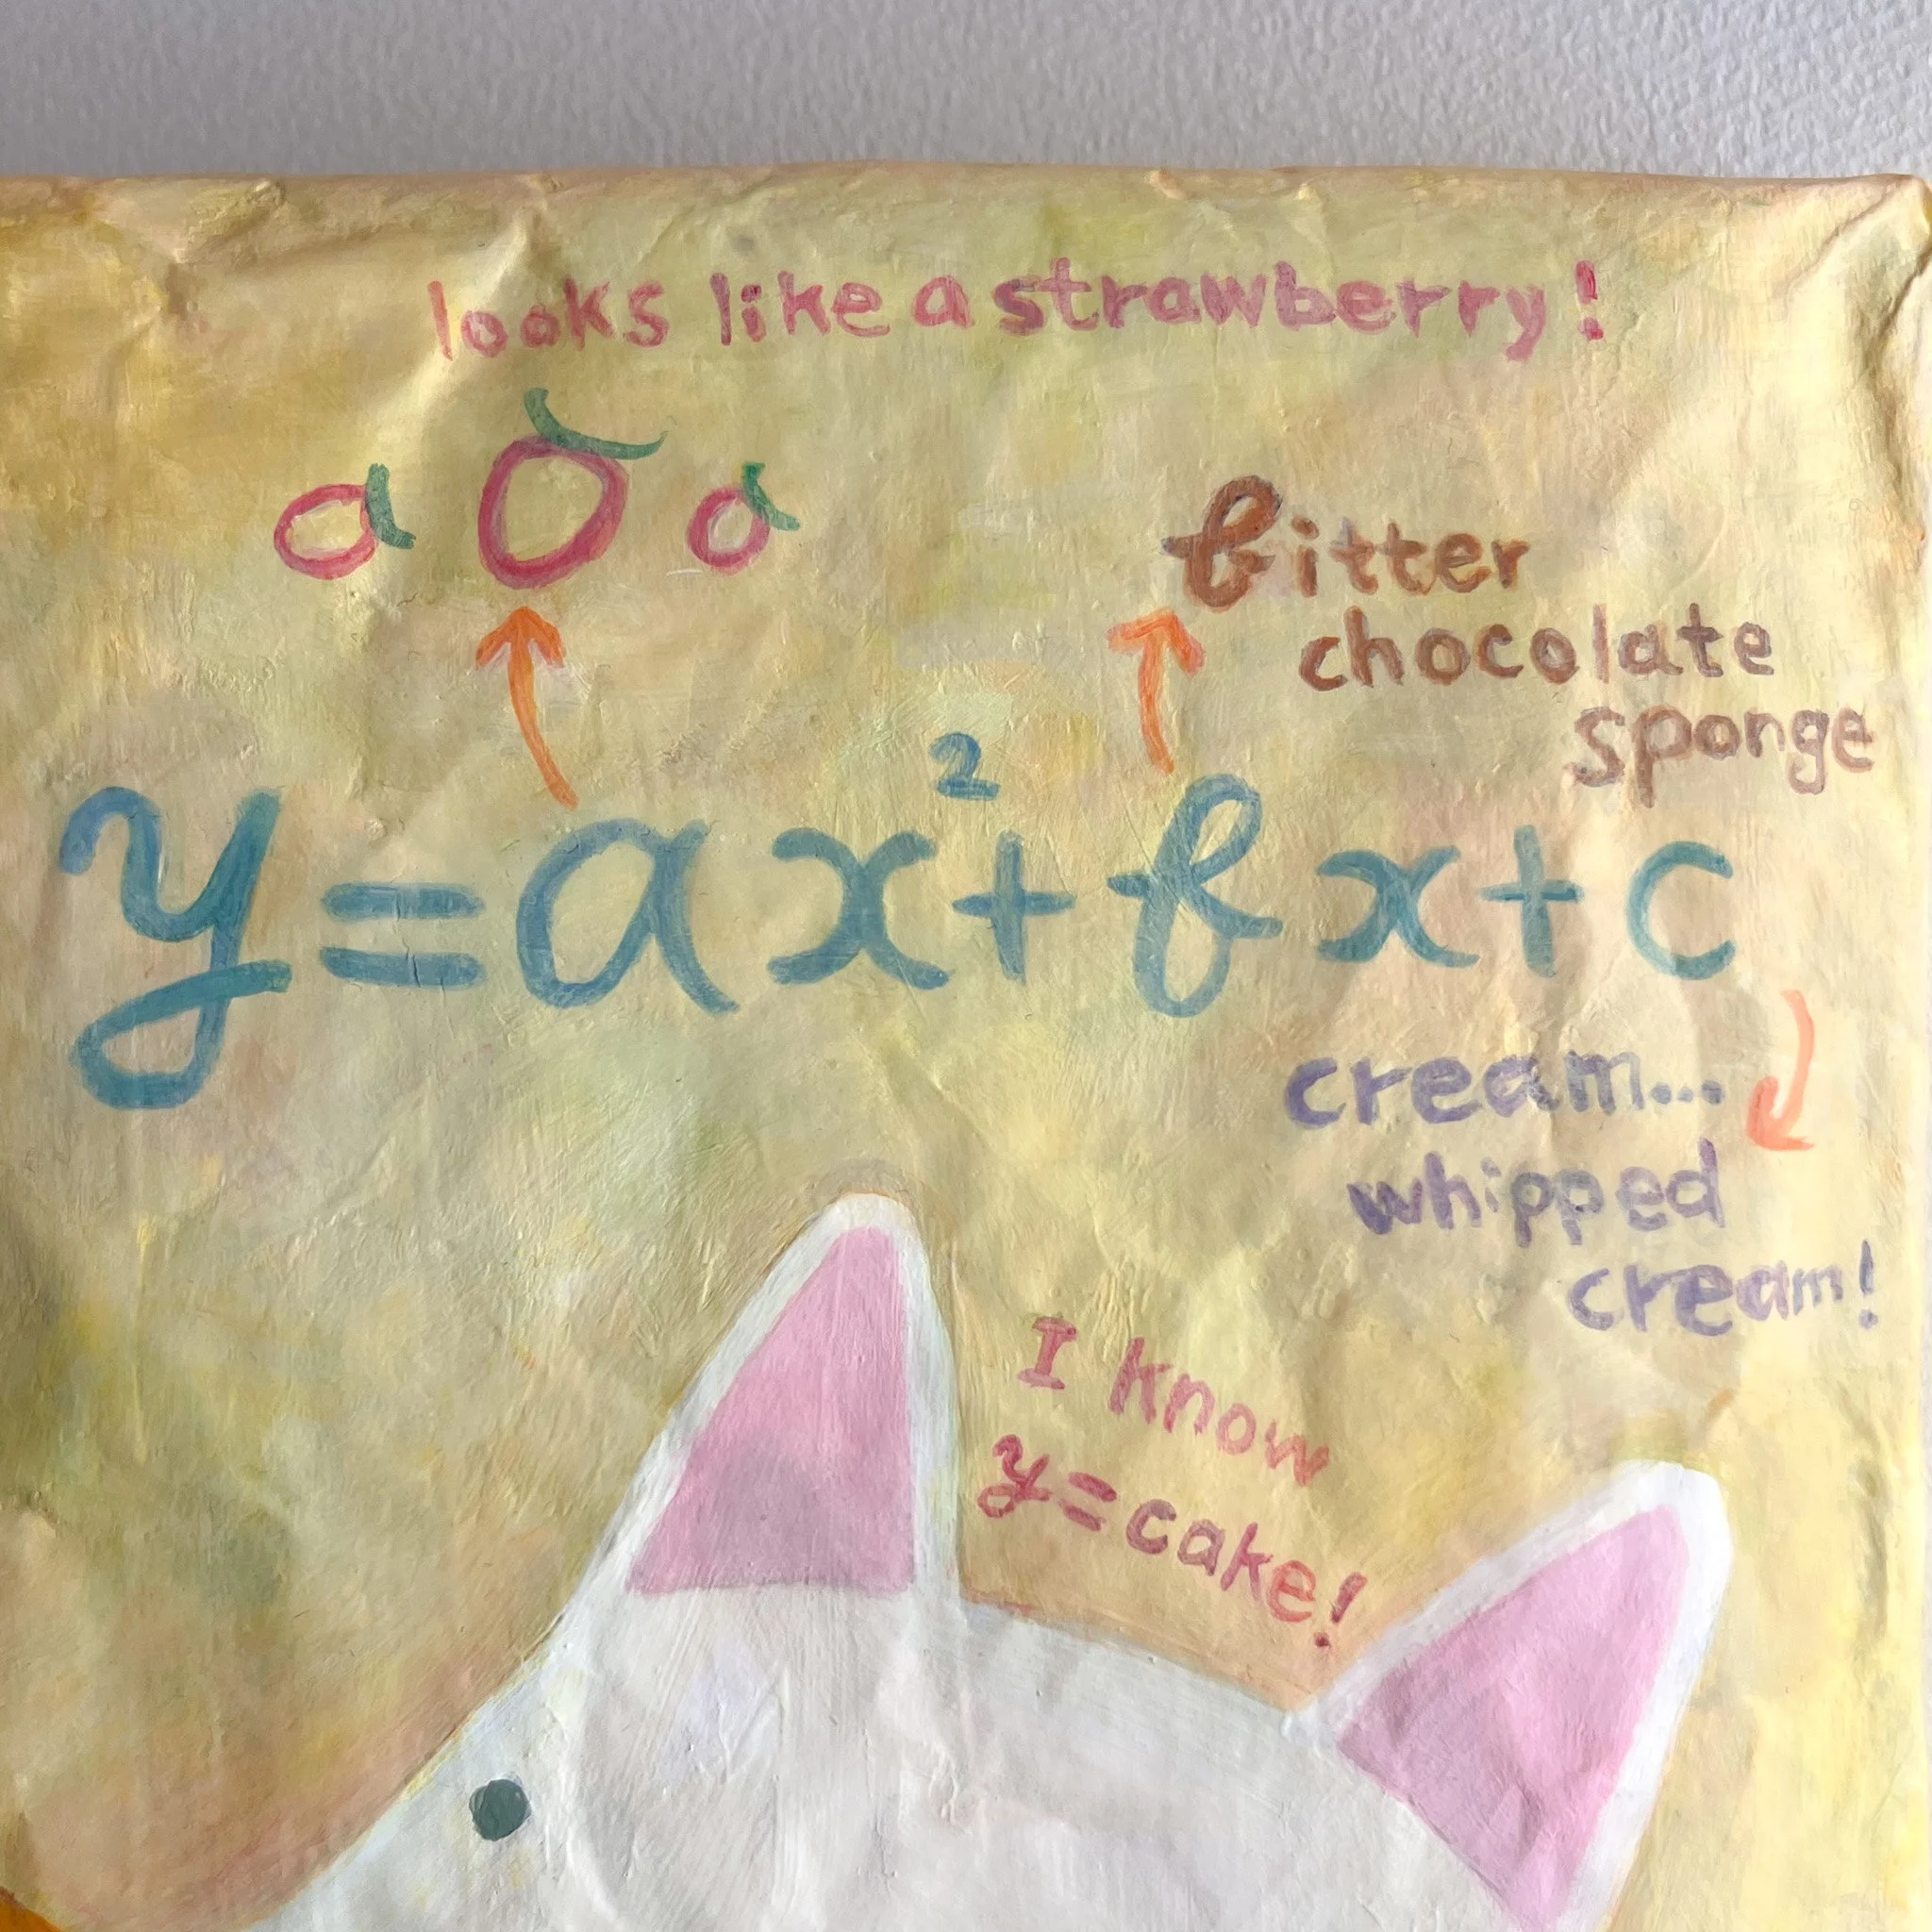 looks like a strawberry!
a a a
bitter
chocolate
sponge
y=ax²+bx+c
cream...
whipped
cream!
I know
y=cake!